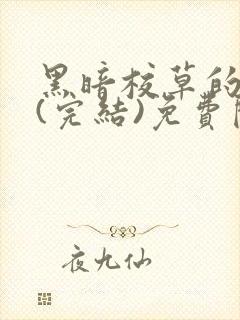 黑暗校草的
(完結)免費
夜九仙